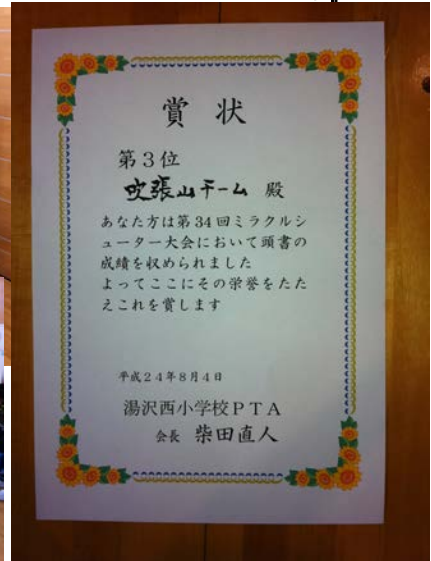 賞状
第3位
吹張山チーム 殿
あなた方は第34回ミラクルシ
ューター大会において頭書の
成績を収められました
よってここにその栄誉をたた
えこれを賞します
平成24年8月4日
湯沢西小学校PTA
会長 柴田直人